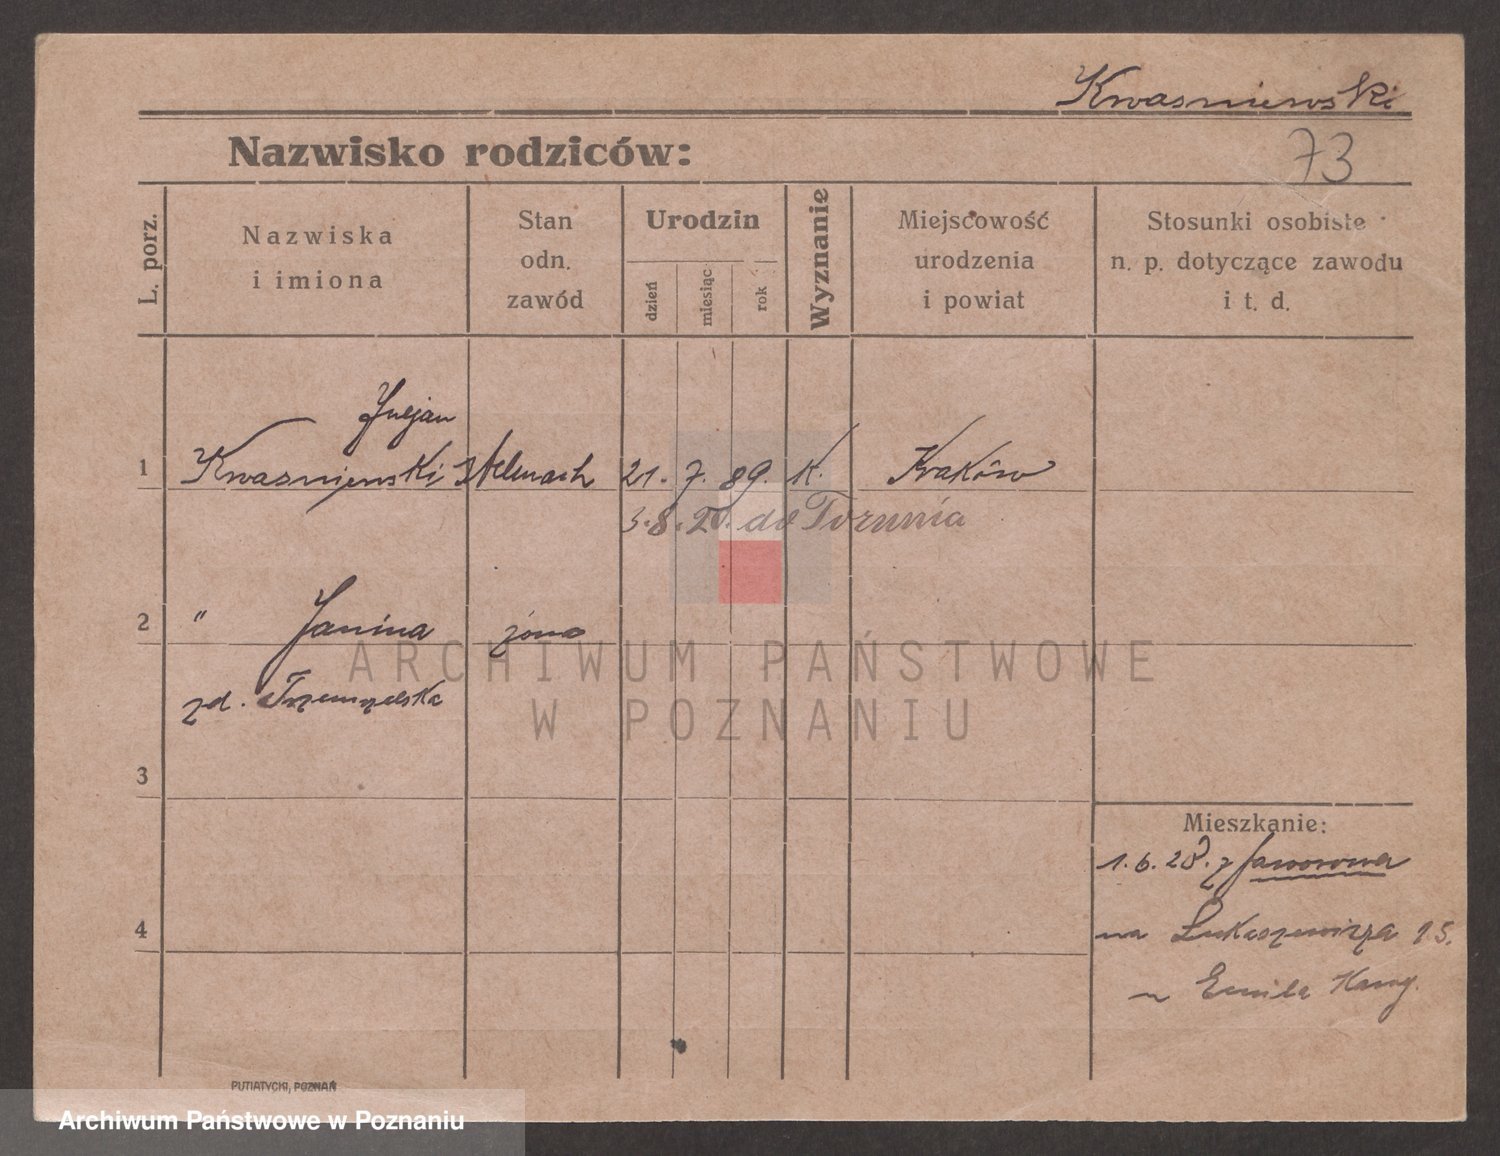 Kwasniewski
Nazwisko rodziców:
73
L. porz.
Nazwiska
i imiona
Stan
odn.
zawód
Urodzin
dzień
miesiąc
rok
Wyznanie
Miejscowość
urodzenia
i powiat
Stosunki osobiste
n. p. dotyczące zawodu
i t. d.
Juljan
1 Kwasniewski 21. 7. 89. K. Kraków
3.8.28. do Torunia
2 " Janina żona
zd.
3
Mieszkanie:
1.6.28. z Jaworowa
4
na Łukaszewicza 15.
PUTIATYCKI, POZNAŃ
ARCHIWUM PAŃSTWOWE
W POZNANIU
Archiwum Państwowe w Poznaniu